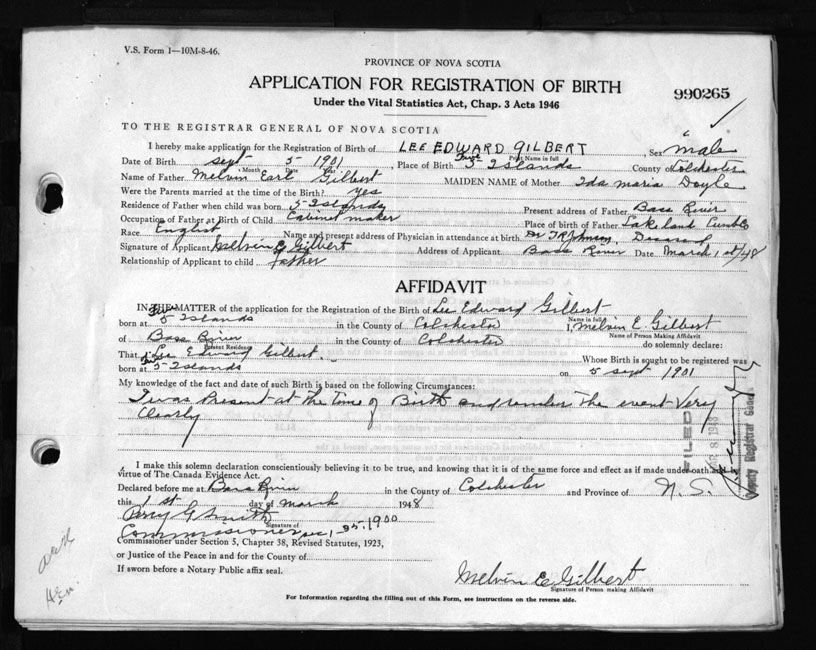 V.S. Form 1—10M-8-46.
PROVINCE OF NOVA SCOTIA
APPLICATION FOR REGISTRATION OF BIRTH
990265
Under the Vital Statistics Act, Chap. 3 Acts 1946
TO THE REGISTRAR GENERAL OF NOVA SCOTIA
I hereby make application for the Registration of Birth of LEE EDWARD GILBERT Sex male
Print Name in full
Date of Birth Sept 5 1901 Place of Birth Five 5 Islands County of Colchester
Month Date Year
Name of Father Melvin Earl Gilbert MAIDEN NAME of Mother Ida Maria Doyle
Were the Parents married at the time of the Birth? yes
Residence of Father when child was born 5-Islands Present address of Father Bass River
Occupation of Father at Birth of Child Cabinet maker Place of birth of Father Lakeland
Race English Name and present address of Physician in attendance at birth Dr
Signature of Applicant Melvin E Gilbert Address of Applicant Bass River Date March 1 st/48
Relationship of Applicant to child father
AFFIDAVIT
IN THE MATTER of the application for the Registration of the Birth of Lee Edward Gilbert
Name in full
born at Five 5 Islands in the County of Colchester I, Melvin E. Gilbert
Name of Person Making Affidavit
of Bass River in the County of Colchester do solemnly declare:
Present Residence
That Lee Edward Gilbert Whose Birth is sought to be registered was
born at Five 5-Islands on 5 Sept 1901
My knowledge of the fact and date of such Birth is based on the following Circumstances:
I was Present at the time of Birth and remember the event Very
Clearly
FILED
1948
Deputy Registrar General
I make this solemn declaration conscientiously believing it to be true, and knowing that it is of the same force and effect as if made under oath and by
virtue of The Canada Evidence Act.
Declared before me at Bass River in the County of Colchester and Province of N.S.
this 1 st day of March 1948
Percy G Smith
Signature of
Commissioner
Commissioner under Section 5, Chapter 38, Revised Statutes, 1923,
or Justice of the Peace in and for the County of
If sworn before a Notary Public affix seal.
Melvin E. Gilbert
Signature of Person making Affidavit
For Information regarding the filling out of this Form, see instructions on the reverse side.